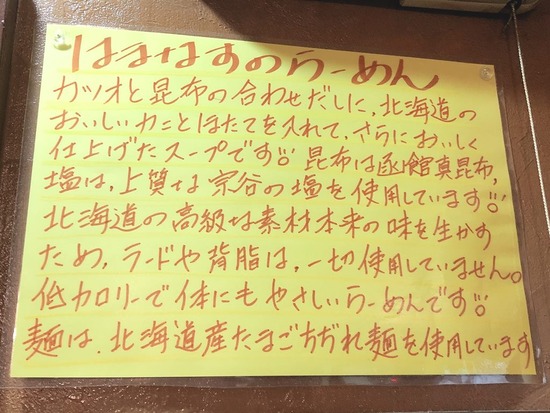 はまなすのらーめん
カツオと昆布の合わせだしに、北海道の
おいしいカニとほたてを入れて、さらにおいしく
仕上げたスープです!! 昆布は函館真昆布、
塩は、上質な宗谷の塩を使用しています!!
北海道の高級な素材本来の味を生かす
ため、ラードや背脂は、一切使用していません。
低カロリーで体にもやさしいらーめんです!!
麺は、北海道産たまごちぢれ麺を使用しています